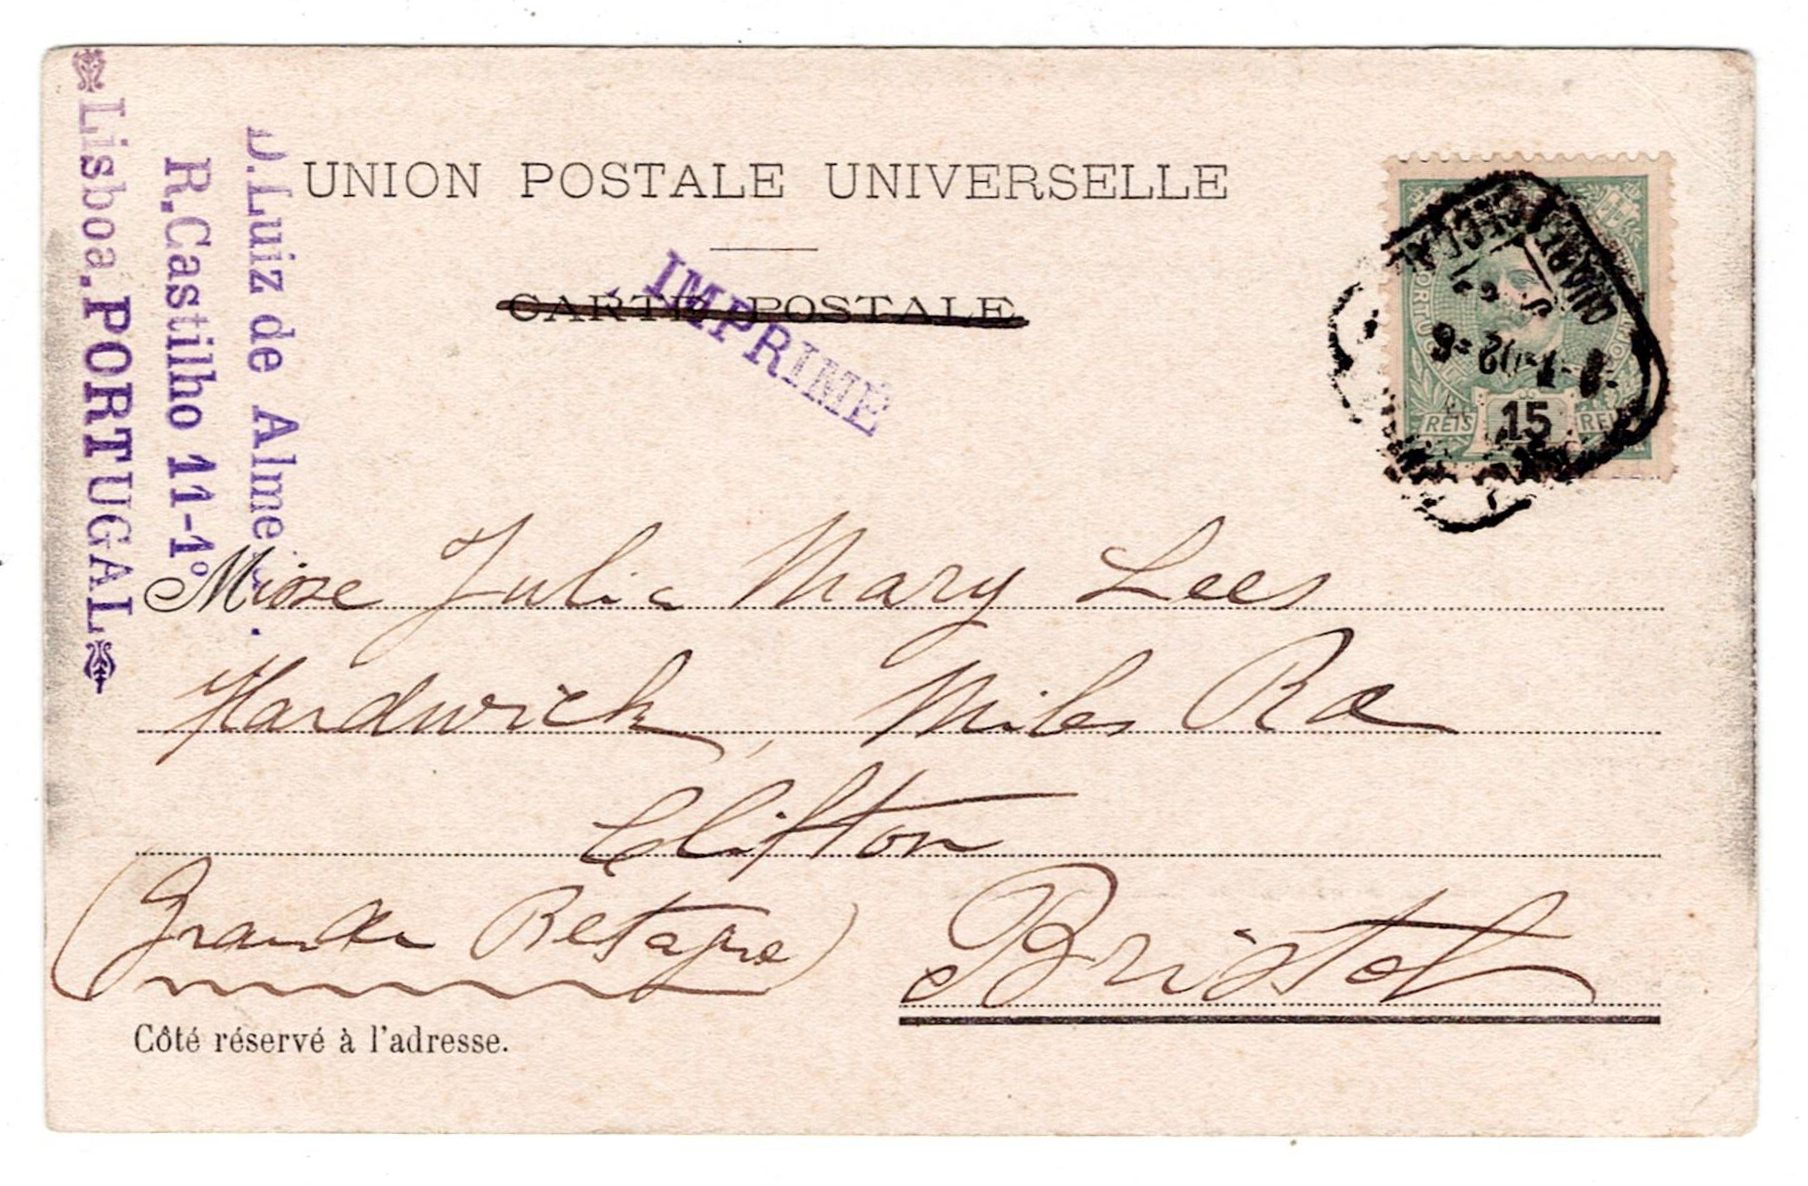 D. Luiz de Almeida.
R. Castilho 11-1º
Lisboa. PORTUGAL
UNION POSTALE UNIVERSELLE
CARTE POSTALE
IMPRIMÉ
PORTUGAL
REIS 15 REIS
Misse Julia Mary Lees
Hardwick, Miles Rd
Clifton
(Grande Bretagne) Bristol
Côté réservé à l'adresse.